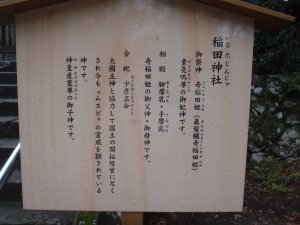 稲田神社
いなたじんじゃ
御祭神 奇稲田姫（真髪觸奇稲田姫）
素戔嗚尊の御妃神です。
相殿 脚摩乳・手摩乳
奇稲田姫の御父神・御母神です。
合祀 少彦名命
大國主神と協力して国土の開拓経営に尽く
され今も〝ムスビ〟の霊威を顕されている
神です。
神皇産霊尊の御子神です。